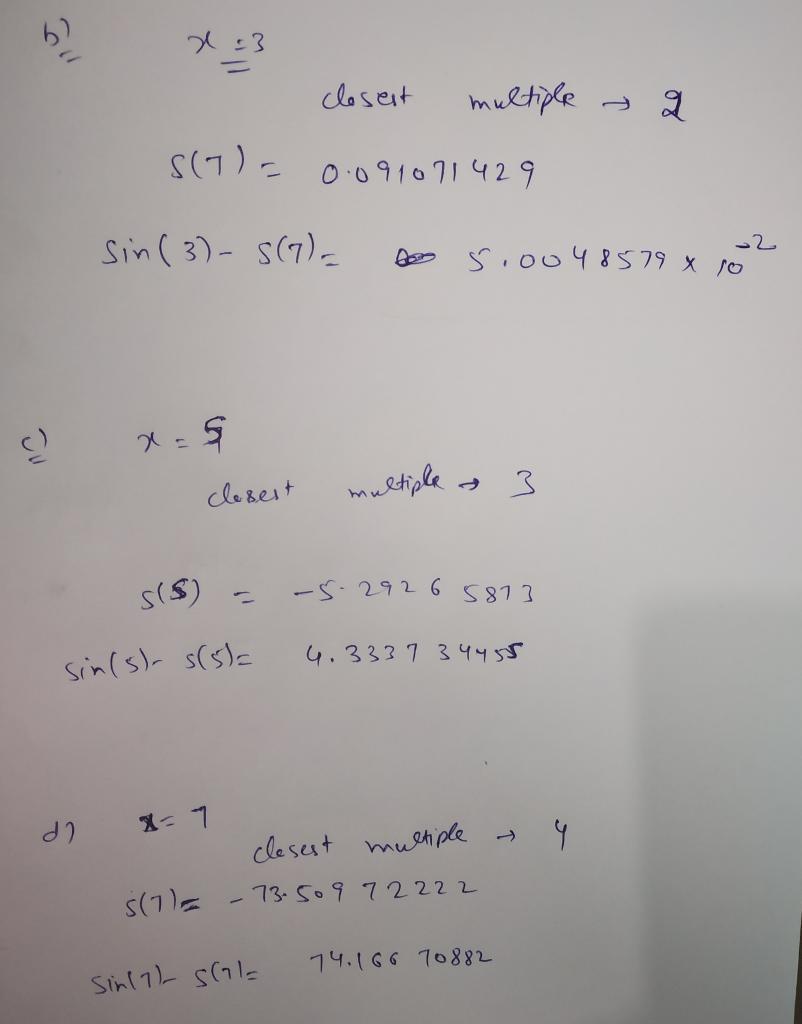 b) x = 3
closest multiple → 2
S(7) = 0.091071429
Sin(3) - S(7) = 5.0048579 x 10^-2
c) x = 5
closest multiple → 3
S(5) = -5.29265873
Sin(5) - S(5) = 4.333734455
d) x = 7
closest multiple → 4
S(7) = -73.50972222
Sin(7) - S(7) = 74.16670882